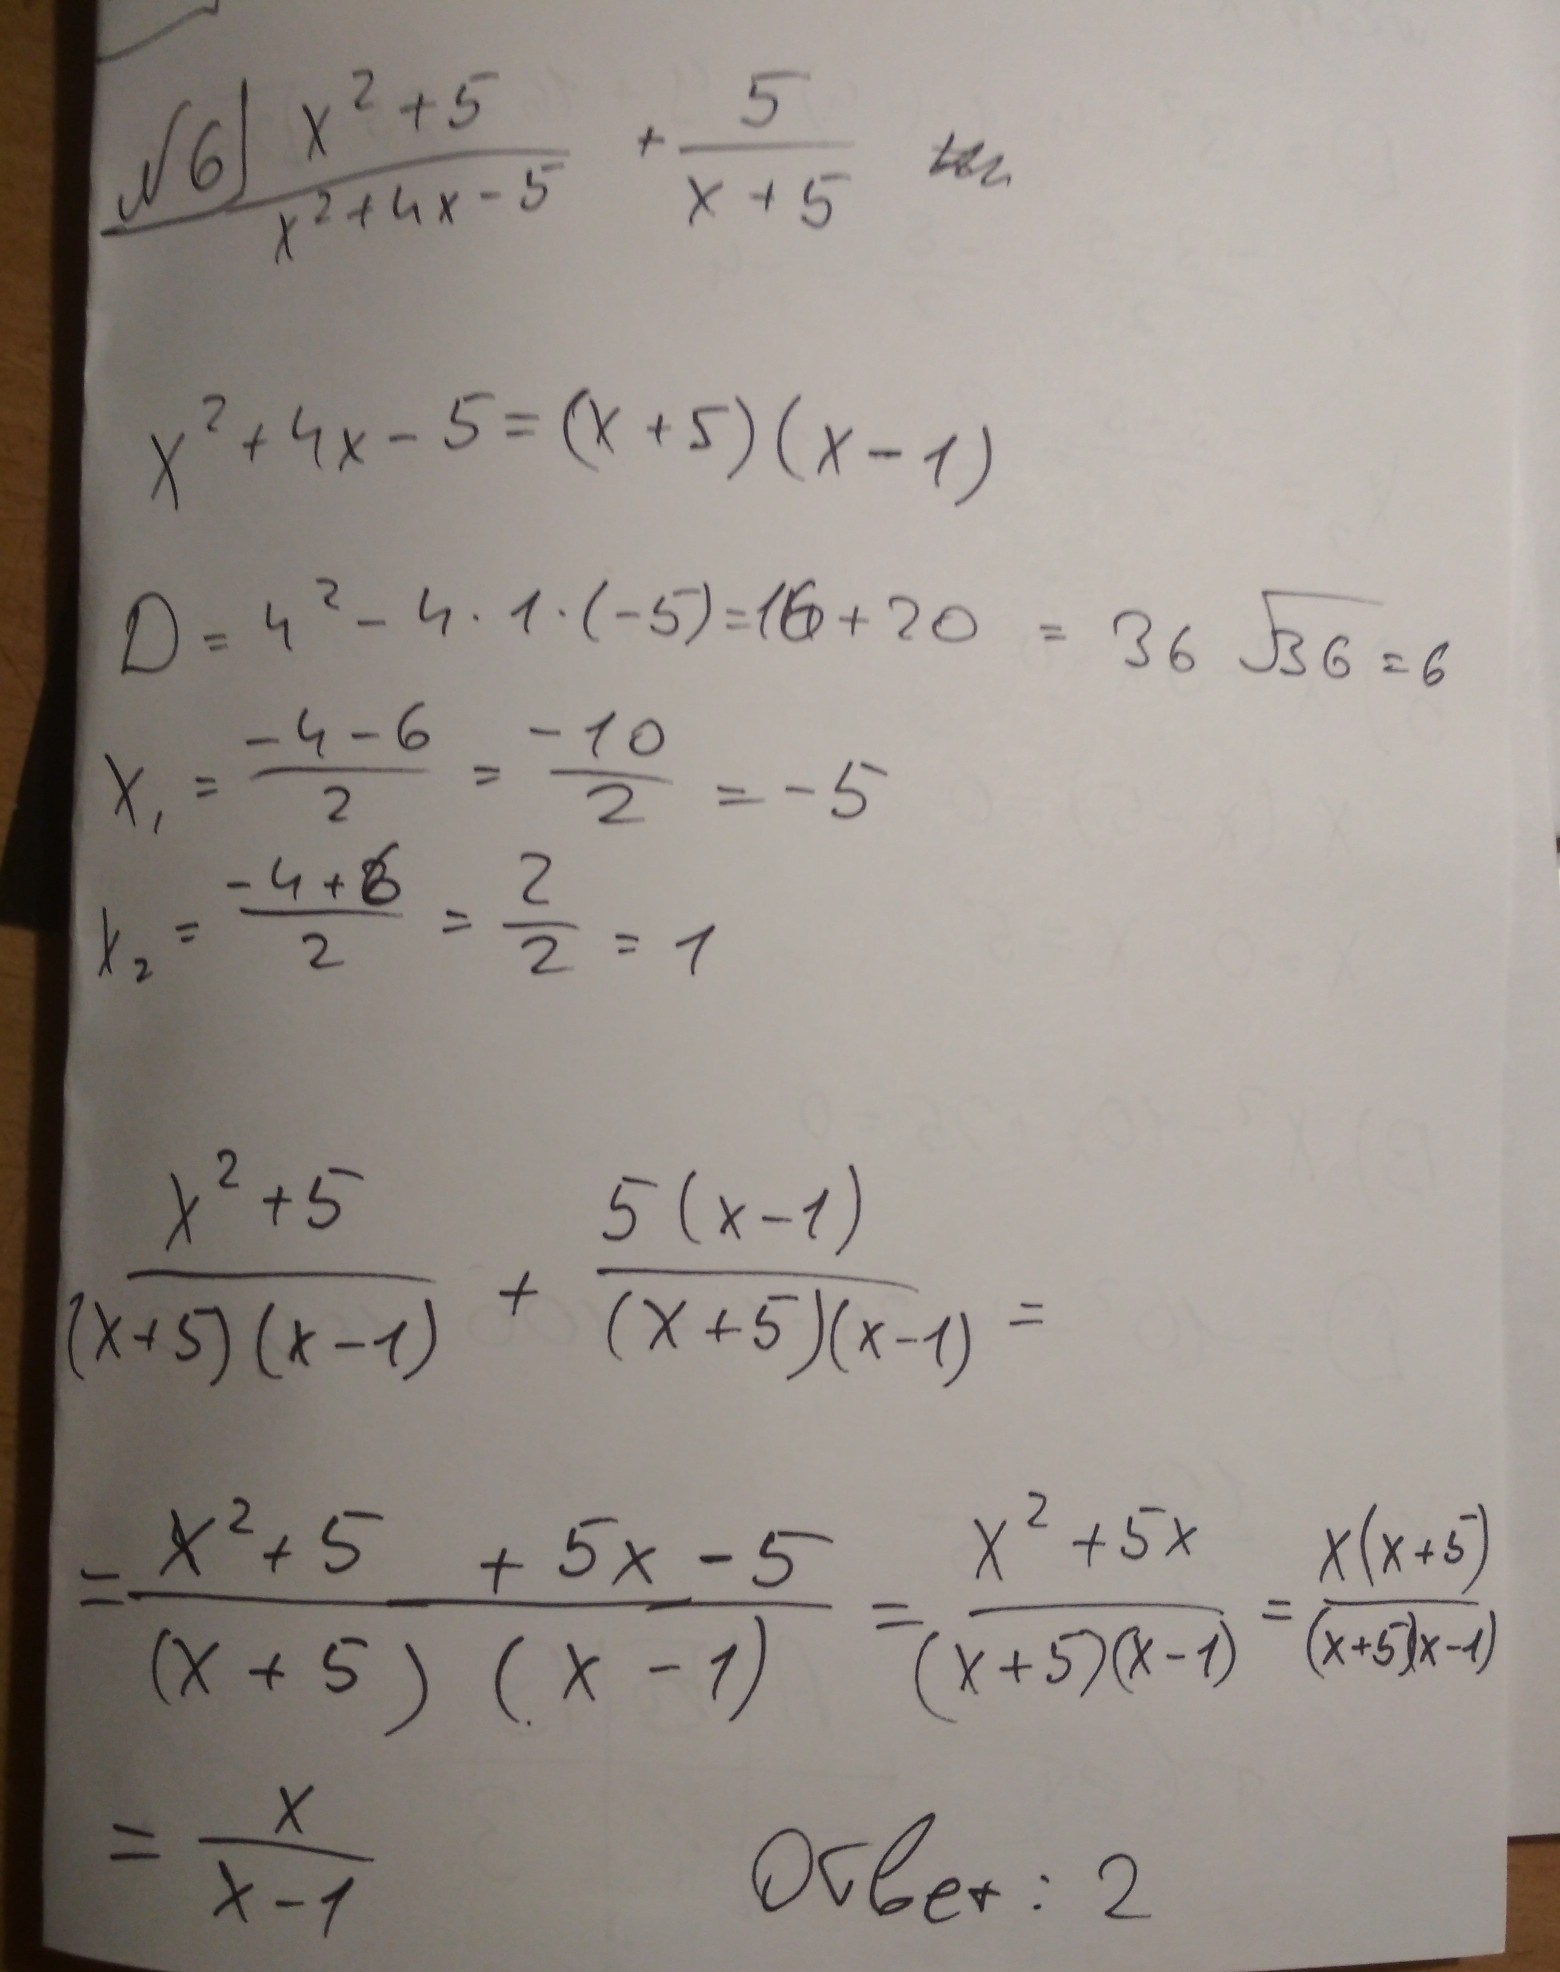 №6) (x² + 5)/(x² + 4x - 5) + 5/(x + 5)
x² + 4x - 5 = (x + 5)(x - 1)
D = 4² - 4 · 1 · (-5) = 16 + 20 = 36 √36 = 6
x₁ = (-4 - 6)/2 = -10/2 = -5
x₂ = (-4 + 6)/2 = 2/2 = 1
(x² + 5)/((x+5)(x-1)) + 5(x-1)/((x+5)(x-1)) =
= (x² + 5 + 5x - 5)/((x + 5)(x - 1)) = (x² + 5x)/((x+5)(x-1)) = x(x+5)/((x+5)(x-1))
= x/(x-1) Ответ: 2